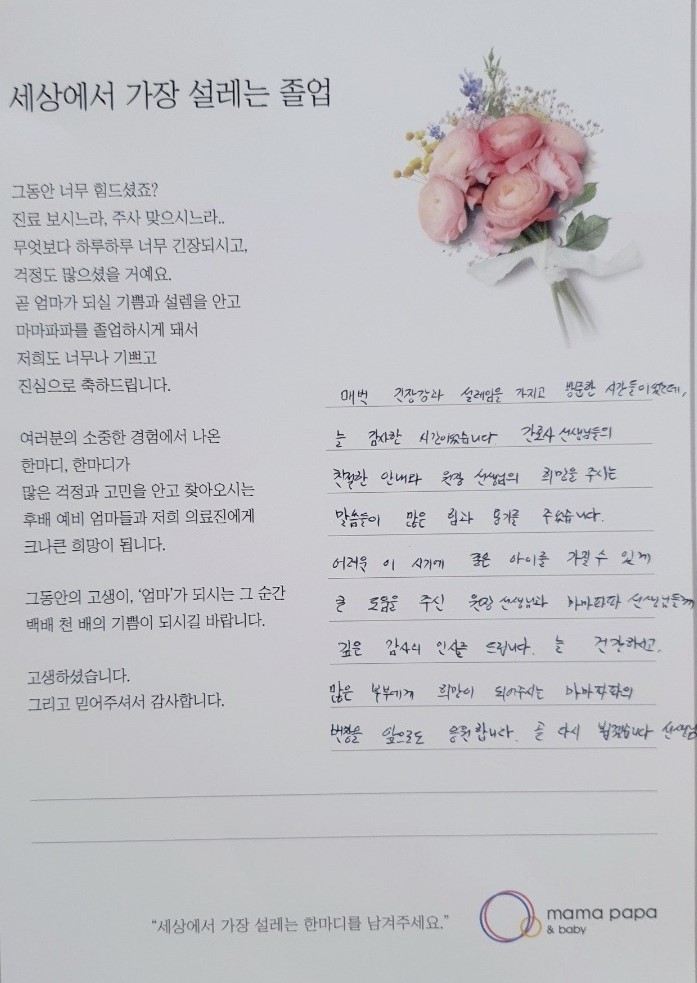 세상에서 가장 설레는 졸업
그동안 너무 힘드셨죠?
진료 보시느라, 주사 맞으시느라..
무엇보다 하루하루 너무 긴장되시고,
걱정도 많으셨을 거예요.
곧 엄마가 되실 기쁨과 설렘을 안고
마마파파를 졸업하시게 돼서
저희도 너무나 기쁘고
진심으로 축하드립니다.
여러분의 소중한 경험에서 나온
한마디, 한마디가
많은 걱정과 고민을 안고 찾아오시는
후배 예비 엄마들과 저희 의료진에게
크나큰 희망이 됩니다.
그동안의 고생이, '엄마'가 되시는 그 순간
백배 천 배의 기쁨이 되시길 바랍니다.
고생하셨습니다.
그리고 믿어주셔서 감사합니다.
매번 긴장감과 설레임을 가지고 방문한 시간들이었는데,
늘 감사한 시간이었습니다. 간호사 선생님들의
친절한 안내와 원장 선생님의 희망을 주시는
말씀들이 많은 힘과 용기를 주었습니다.
어려운 이 시기에 좋은 아이를 가질 수 있게
큰 도움을 주신 원장 선생님과 마마파파 선생님들께
깊은 감사의 인사를 드립니다. 늘 건강하시고,
많은 부부에게 희망이 되어주시는 마마파파의
번창을 앞으로도 응원합니다. 곧 다시 뵙겠습니다 선생님
"세상에서 가장 설레는 한마디를 남겨주세요."
mama papa
& baby